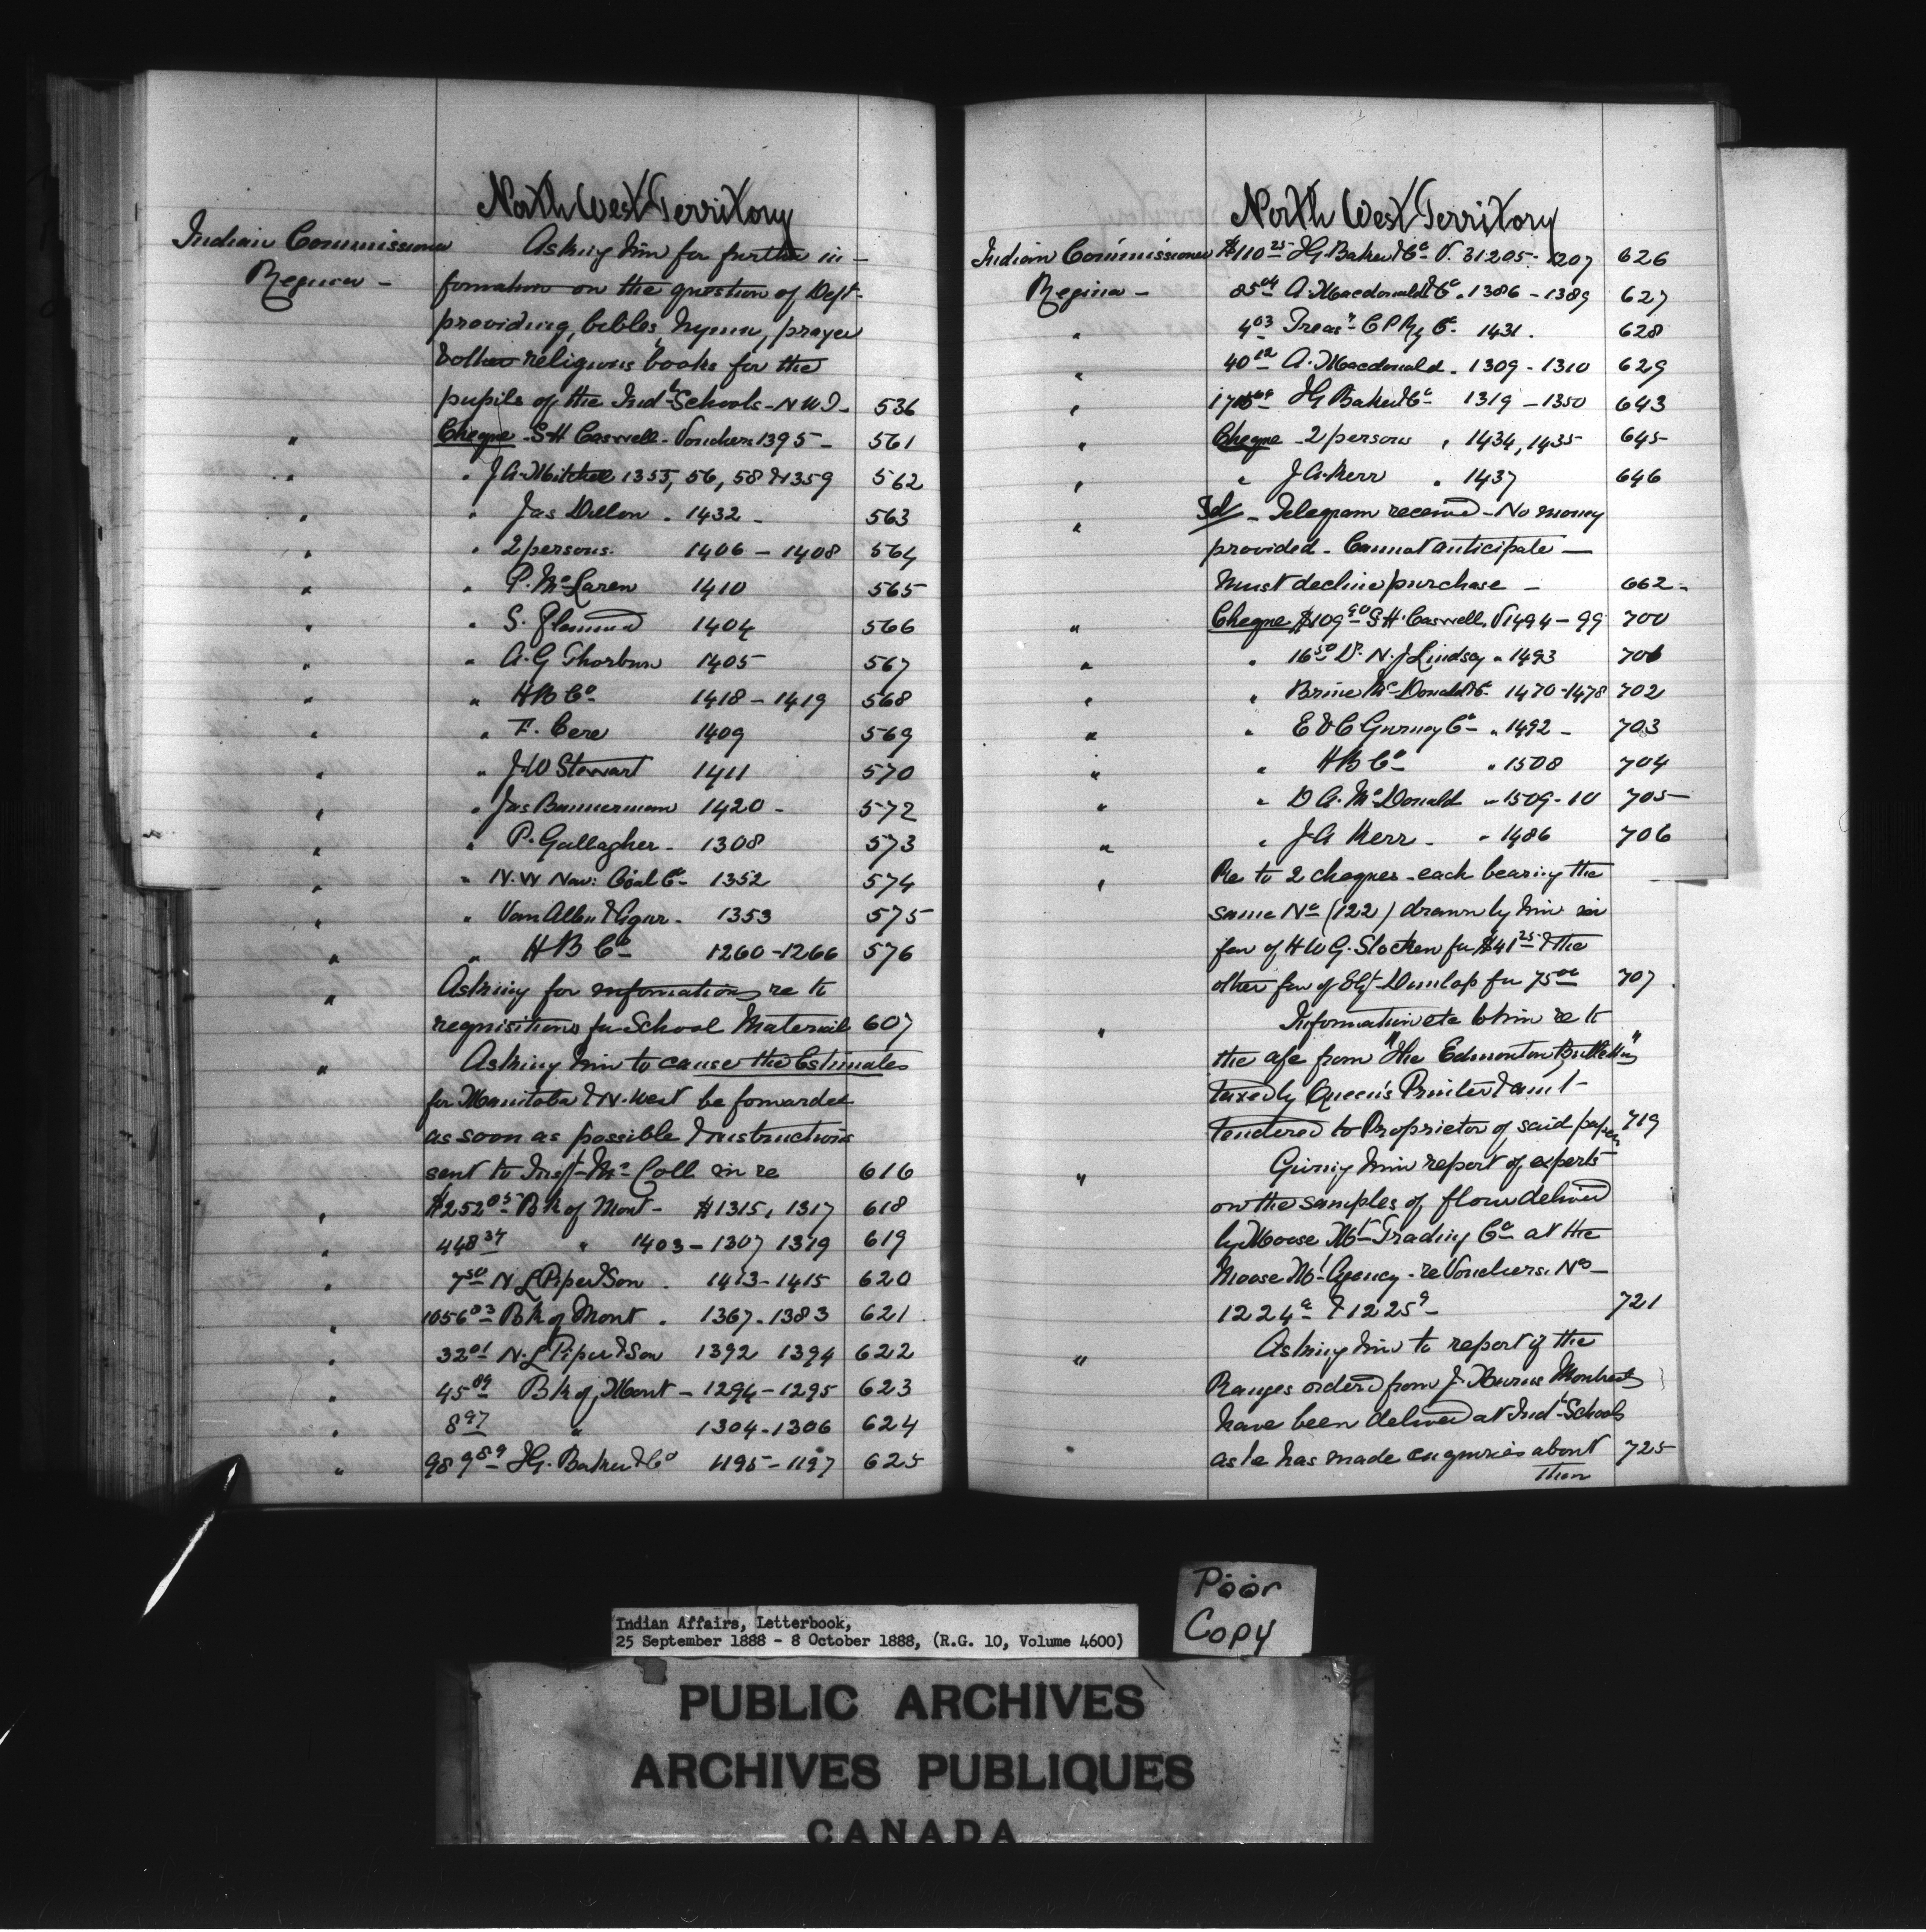 North West Territory
Indian Commissioner Asking him for further in-
Regina - formation on the question of Dept.
providing, bibles, hymn, prayer
& other religious books for the
pupils of the Ind'l Schools - N W T - 536
" Cheque - S H Caswell - Vouchers 1395 - 561
" " J A. Mitchell 1355, 56, 58 & 1359 562
" " Jas Dillon . 1432 - 563
" " 2 persons. 1406 - 1408 564
" " P. McLaren 1410 565
" " S. 1404 566
" " A. G Thorburn 1405 567
" " H B Co 1418 - 1419 568
" " F. Cere 1409 569
" " J. W Stewart 1411 570
" " Jas Bannerman 1420 - 572
" " P. Gallagher - 1308 573
" " N. W Nav: Coal Co 1352 574
" " Van Allen & Agur - 1353 575
" " H B Co 1260 - 1266 576
" Asking for information re to
requisitions for School Material 607
" Asking him to cause the Estimates
for Manitoba & N. West be forwarded
as soon as possible & instructions
sent to Insp't McColl in re 616
" $252 05 Bk of Mont - $1315, 1317 618
" 448 34 " 1403 - 1307 1319 619
" 7 50 N L Piper & Son . 1413 - 1415 620
" 1056 03 Bk of Mont . 1367 - 1383 621
" 32 01 N. L Piper & Son 1392 1394 622
" 45 09 Bk of Mont - 1294 - 1295 623
" 8 97 " 1304 - 1306 624
" 989 89 I G. Baker & Co 1195 - 1197 625
North West Territory
Indian Commissioner $110 25 I G. Baker & Co V. 31205 - 1207 626
Regina - 85 04 A. Macdonald & Co . 1386 - 1389 627
" 4 03 Treasr C P Ry Co. 1431 . 628
" 40 12 A. Macdonald . 1309 - 1310 629
" I G Baker & Co 1319 - 1350 643
" Cheque - 2 persons " 1434, 1435 645
" " J A. Kerr " 1437 646
" Tel - Telegram received - No money
provided - Cannot anticipate -
Must decline purchase - 662 -
" Cheque $109 90 S H. Caswell V 1494 - 99 700
" " 16 50 Dr. N. J Lindsay " 1493 701
" " Brine McDonald & Co 1470 - 1478 702
" " E & C Gurney Co " 1492 - 703
" " H B Co " 1508 704
" " D A. McDonald " 1509 - 10 705
" " J A Kerr - " 1486 706
" Re to 2 cheques - each bearing the
same No (122) drawn by him in
fav of H W G. Stocken for $41 25 & the
other fav of Dunlap for 75 00 707 .
" Information etc to him re to
the a/c from "The Edmonton Bulletin"
taxed by Queen's Printer & amt
tendered to Proprietor of said paper 719
" Giving him report of experts
on the samples of flour delivered
by Moose Mt Trading Co at the
Moose Mt Agency - re Vouchers. Nos -
1224 a & 1225 a - 721
" Asking him to report if the
Ranges ordered from J. Burns Montreal
have been delivered at Ind'l Schools
as he has made enquiries about 725
them
Poor
Copy
Indian Affairs, Letterbook,
25 September 1888 - 8 October 1888, (R.G. 10, Volume 4600)
PUBLIC ARCHIVES
ARCHIVES PUBLIQUES
CANADA